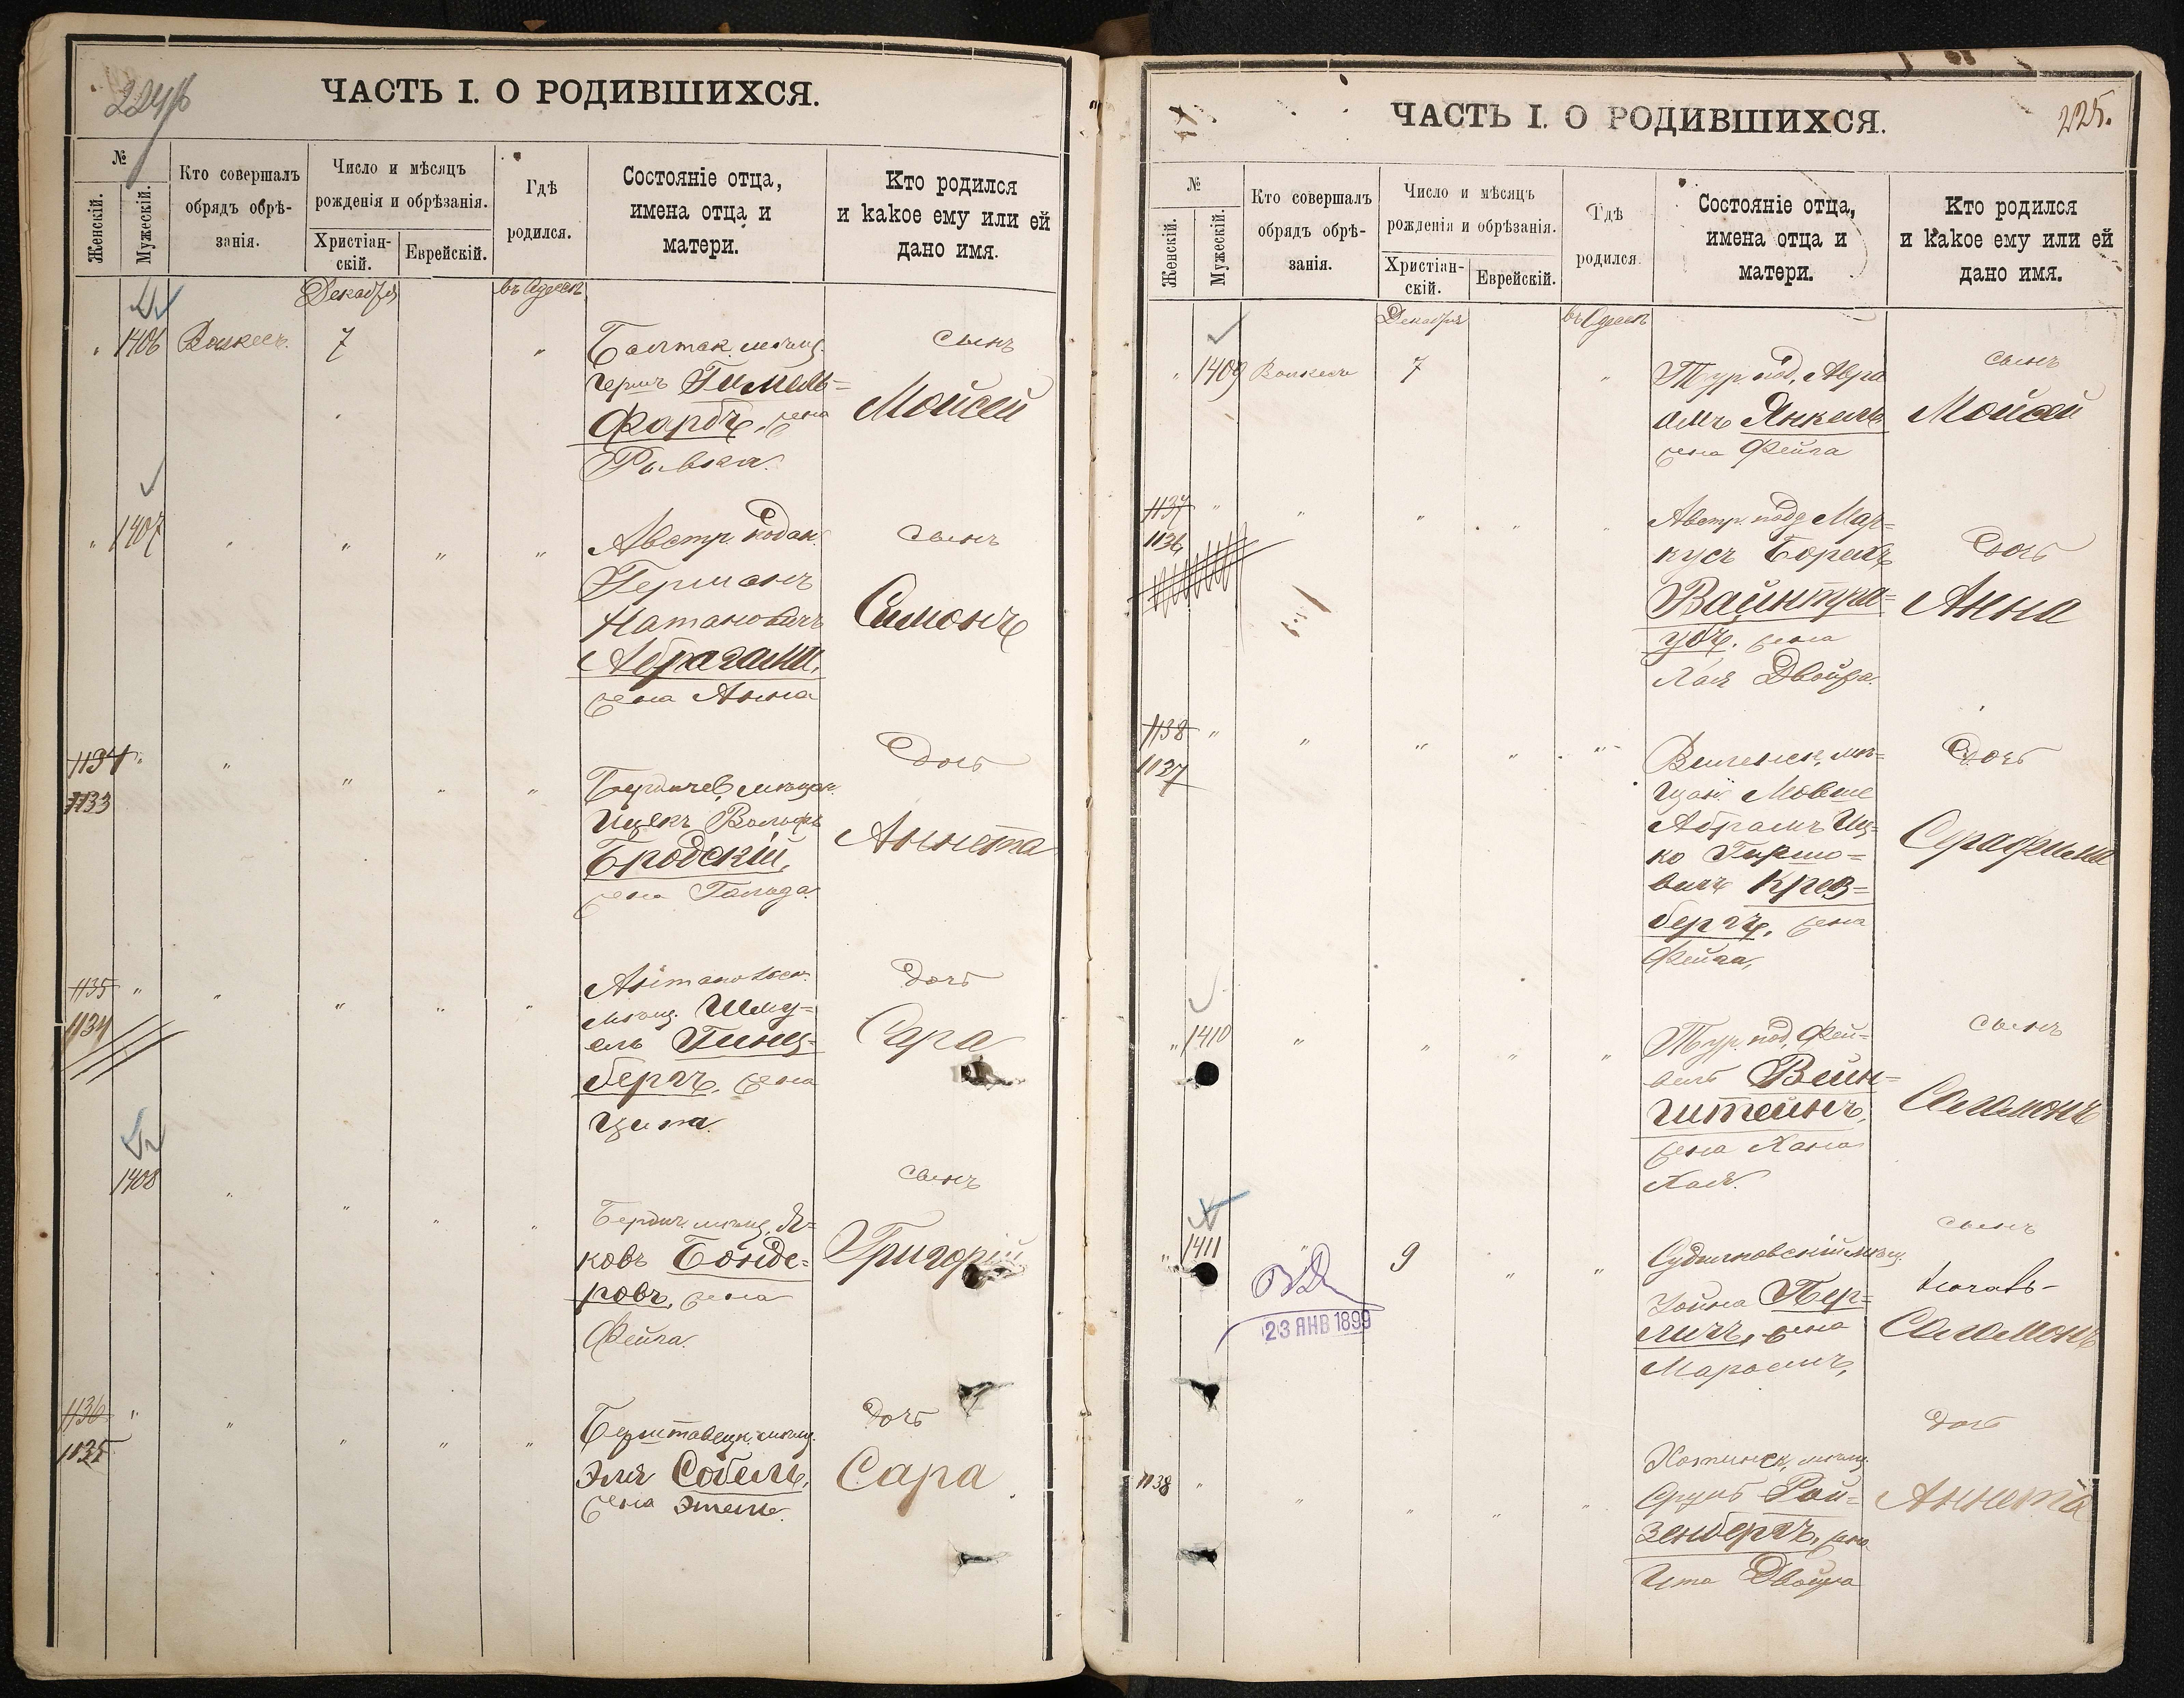 224/б
ЧАСТЬ I. О РОДИВШИХСЯ.
№
Женскій.
Мужескій.
Кто совершалъ
обрядъ обрѣ-
занія.
Число и мѣсяцъ
рожденія и обрѣзанія.
Христіан-
скій.
Еврейскій.
Гдѣ
родился.
Состояніе отца,
имена отца и
матери.
Кто родился
и какое ему или ей
дано имя.
Декабря
въ Одессѣ
" 1406
7
"
Балтск. мѣщ.
Гершъ Гимель=
Фарбъ, жена
Ривка.
сынъ
Моисей
" 1407 " " " "
Австр. поддан.
Германъ
Натановичъ
Абрагами,
жена Анна
сынъ
Симонъ
1134 " " " " "
1133
Бердичев. мѣщан.
Ицекъ Вольфъ
Бродскій,
жена Гольда.
дочь
Аннета
1135 " " " " "
1134
мѣщ. Шму=
ель Гинз=
бергъ, жена
Ципа.
дочь
Сара
1408 " " " "
Бердич. мѣщ. Я=
ковъ Бонде=
ровъ, жена
Фейга.
сынъ
Григорій
1136 " " " " "
1135
мѣщ.
Эля Собель,
жена Этель.
дочь
Сара
225.
ЧАСТЬ I. О РОДИВШИХСЯ.
№
Женскій.
Мужескій.
Кто совершалъ
обрядъ обрѣ-
занія.
Число и мѣсяцъ
рожденія и обрѣзанія.
Христіан-
скій.
Еврейскій.
Гдѣ
родился.
Состояніе отца,
имена отца и
матери.
Кто родился
и какое ему или ей
дано имя.
Декабря
въ Одессѣ
" 1409
7
"
Тур. под. Авра
амъ Янкель
жена Фейга
сынъ
Мойсей
1137 " " " " "
1136
Австр. подд. Мар=
кусъ Борехъ
Вайнтра=
убъ, жена
Хая Двойра.
дочь
Анна
1138 " " " " "
1137
Виленск. мѣ=
щан. Мовше
Абрамъ Иц=
ко Гершо=
вичъ Крез=
бергъ, жена
Фейга,
дочь
Серафима
" 1410 " " " "
Тур. под. Фей=
вель Вейн=
штейнъ,
жена Хана
Хая.
сынъ
Соломонъ
" 1411 " 9 " "
23 ЯНВ 1899
Судилковскій мѣщ.
Хойна Пер=
личъ, жена
сынъ
Соломонъ
1138 " " " " "
Хотинск. мѣщ.
Срулъ Рой=
зенбергъ, жена
Ита Двойра
дочь
Аннета